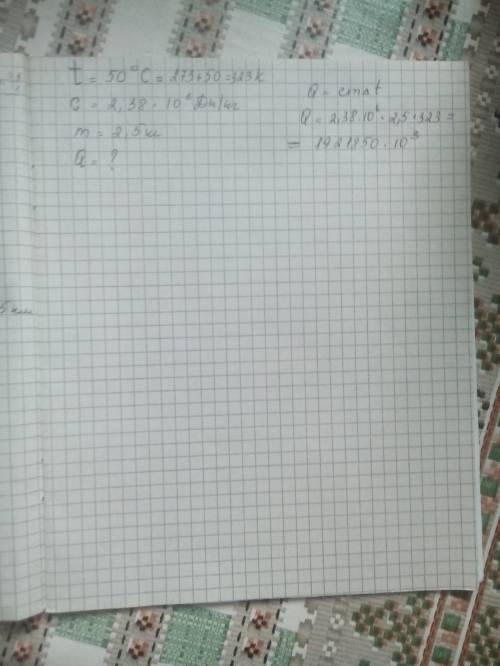 t = 50°C = 273+50=323k
c = 2,38 · 10⁶ Дж/кг
m = 2,5 кг
Q = ?
Q = cmΔt
Q = 2,38·10⁶ · 2,5 · 323 =
= 1921850 · 10³